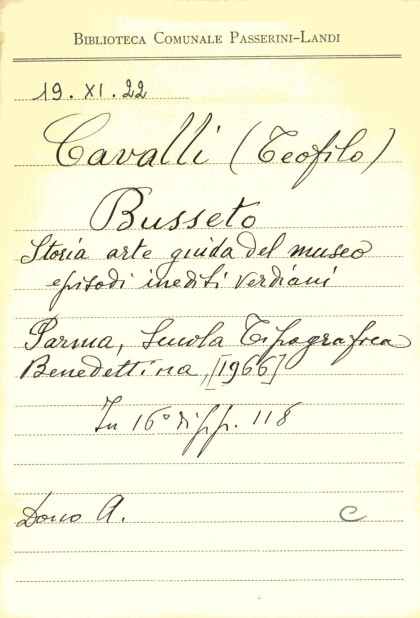 BIBLIOTECA COMUNALE PASSERINI-LANDI
19. XI. 22
Cavalli (Teofilo)
Busseto
Storia arte guida del museo
episodi inediti verdiani
Parma, Scuola Tipografica
Benedettina, [1966]
In 16° di pp. 118
Dono A.
C